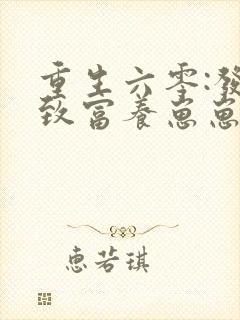 重生六零:發
致富养崽崽
惠若琪